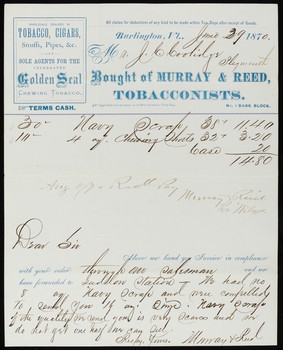 All claims for deductions of any kind to be made within Two Days after receipt of Goods.
WHOLESALE DEALERS IN
TOBACCO, CIGARS,
Snuffs, Pipes, &c.
SOLE AGENTS FOR THE
CELEBRATED
Golden Seal
CHEWING TOBACCO.
TERMS CASH.
Burlington, Vt., June 29 1870.
Mr. J. C. Coolidge
Plymouth
Bought of MURRAY & REED,
TOBACCONISTS.
No. 1 BANK BLOCK.
30 Navy 38 11.40
4 oz. Chewing 32 3.20
Case 20
14.80
Murray & Reed
Dear Sir
Above we hand you Invoice in compliance
with your order through our salesman and
have forwarded to Ludlow Station - We had no
8 oz Navy Scrap and were compelled
to send you 4 oz. Navy Scrap
of the quality we send you is very scarce and we
do not get one half we can sell
Truly Yours Murray & Reed